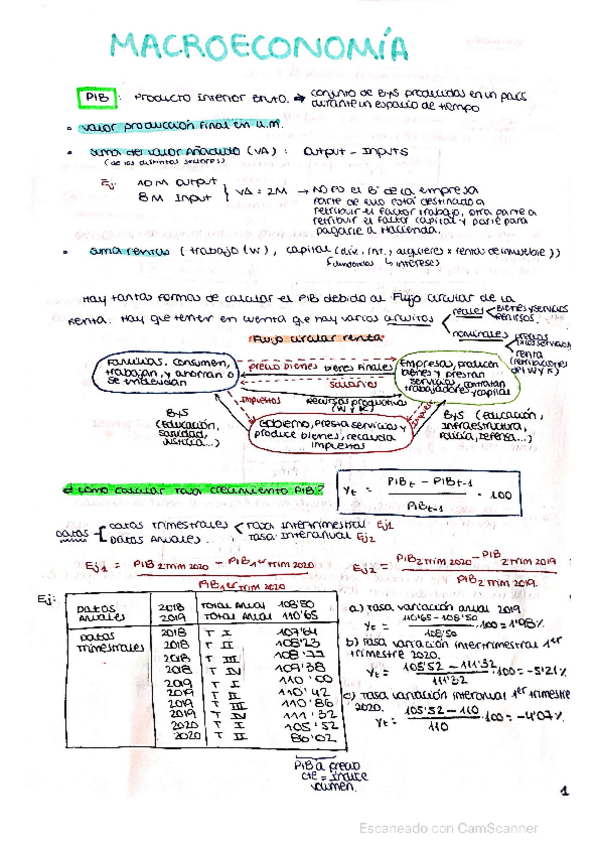 MACROECONOMÍA
PIB : Producto Interior Bruto. → conjunto de Bys producidas en un país
durante un espacio de tiempo
• valor producción final en u.m.
• suma del valor añadido (VA) : Output - Inputs
(de los distintos sectores)
Ej: 10 M Output
8 M Input } VA = 2M → No es el Bº de la empresa
parte de ello está destinado a
retribuir el factor trabajo, otra parte a
retribuir el factor capital y parte para
pagarle a Hacienda.
• suma rentas ( trabajo (W) , capital (div, int., alquileres x rentas de inmueble ))
dividendos intereses
Hay tantas formas de calcular el PIB debido al Flujo circular de la
Renta. Hay que tener en cuenta que hay varios circuitos
reales
bienes y servicios
recursos.
nominales
precios
renta
Flujo circular renta
Familias. Consumen,
trabajan, y ahorran o
se endeudan
precio bienes bienes finales
salarios
impuestos
Recursos productivos
(W y K)
Empresas, producen
bienes y prestan
servicios, contratan
trabajadores y capital
BYS
(Educación,
sanidad,
justicia...)
Gobierno, presta servicios y
produce bienes, recauda
impuestos
Bys (Educación,
Infraestructura,
Policía, Defensa...)
¿Cómo calcular tasa crecimiento PIB?
Yt = PIBt - PIBt-1 / PIBt-1 · 100
DATOS
Datos trimestrales
Tasa Intertrimestral Ej1
Tasa Interanual Ej2
Datos Anuales.
Ej1 = PIB 2 trim 2020 - PIB 1er trim 2020 / PIB 1er trim 2020
Ej2 = PIB 2 trim 2020 - PIB 2 trim 2019 / PIB 2 trim 2019
Ej:
DATOS Anuales
2018 Total Anual 108'50
2019 Total Anual 110'65
Datos trimestrales
2018 T I 107'64
2018 T II 108'23
2018 T III 108'77
2018 T IV 109'38
2019 T I 110'00
2019 T II 110'42
2019 T III 110'86
2019 T IV 111'32
2020 T I 105'52
2020 T II 86'02
PIB a precio
cte = Índice
volumen.
a) Tasa variación anual 2019
Yt = 110'65 - 108'50 / 108'50 · 100 = 1'98%
b) Tasa variación intertrimestral 1er
trimestre 2020.
Yt = 105'52 - 111'32 / 111'32 · 100 = -5'21%
c) Tasa variación interanual 1er trimestre
2020.
Yt = 105'52 - 110 / 110 · 100 = -4'07%
1
Escaneado con CamScanner